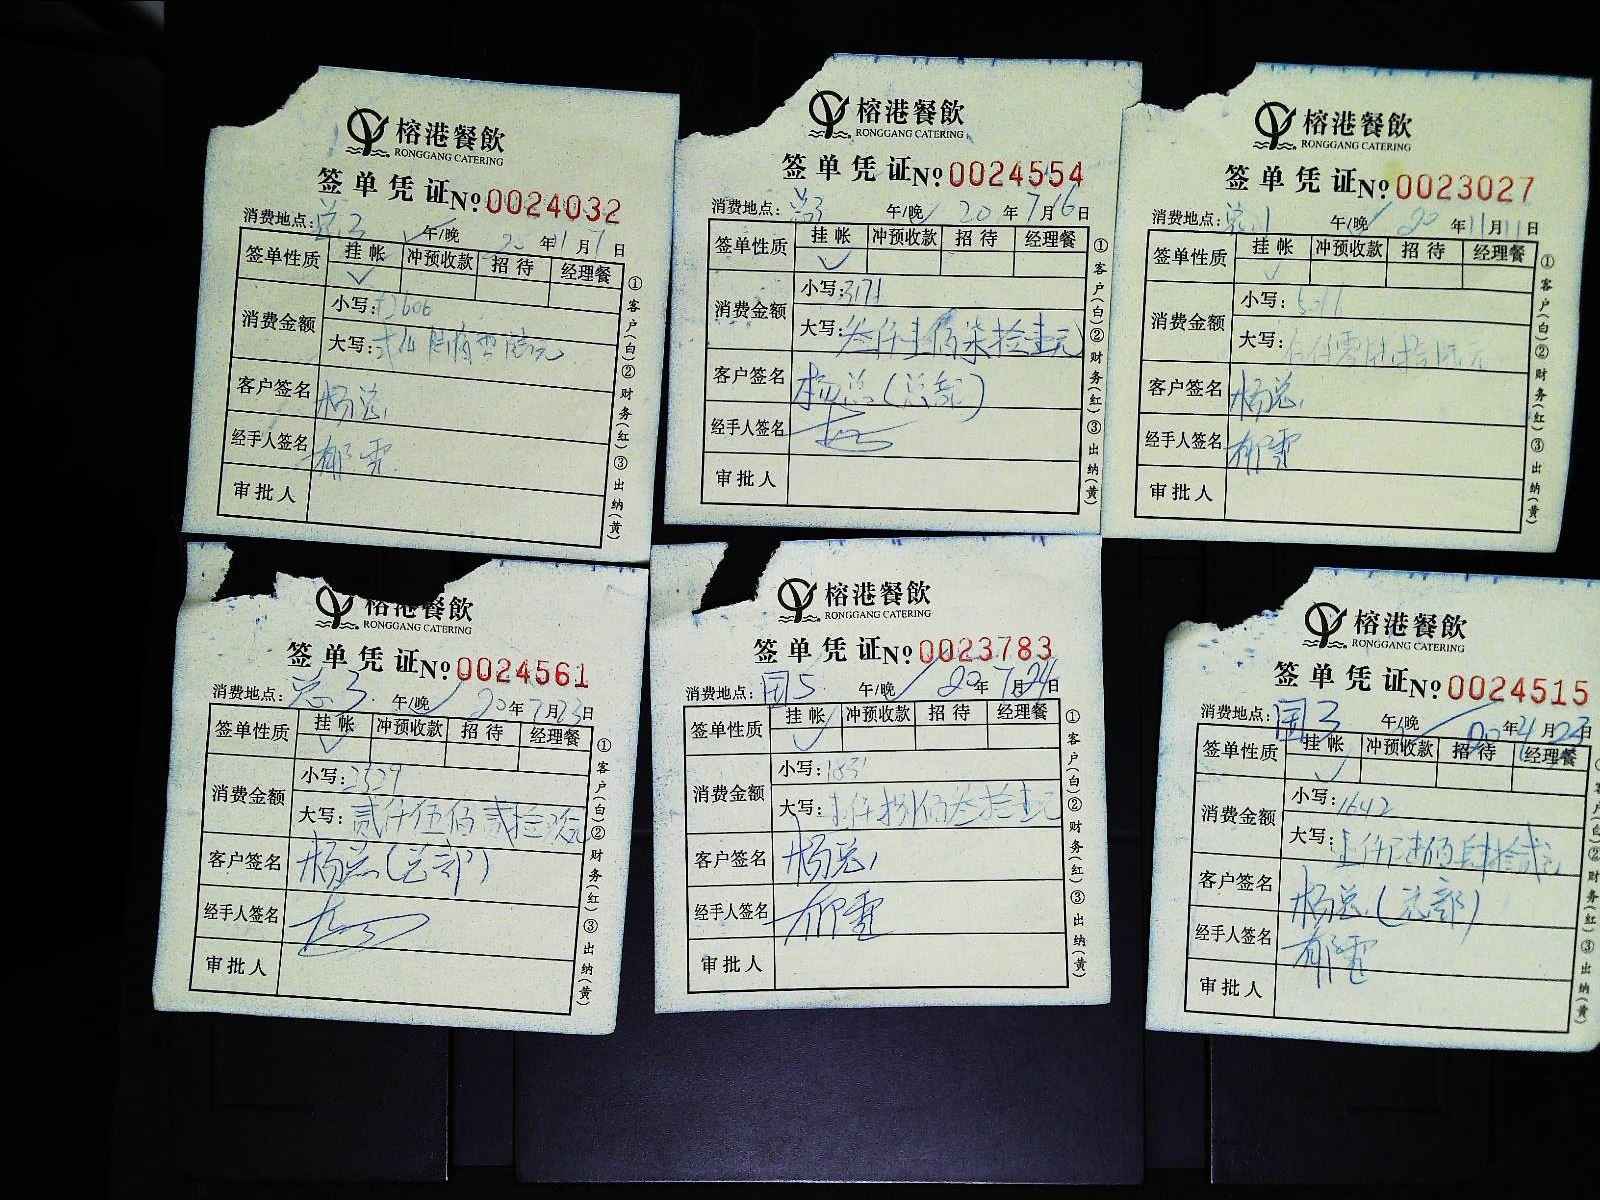 榕港餐飲
RONGGANG CATERING
签单凭证№ 0024032
消费地点: 总3 午/晚 20年1月7日
签单性质 挂帐 冲预收款 招待 经理餐
消费金额
小写: 2606
大写:
客户签名 杨总
经手人签名 郁雪
审批人
①客户(白)②财务(红)③出纳(黄)
榕港餐飲
RONGGANG CATERING
签单凭证№ 0024554
消费地点: 总3 午/晚 20年7月16日
签单性质 挂帐 冲预收款 招待 经理餐
消费金额
小写: 3171
大写: 叁仟壹佰柒拾壹元
客户签名 杨总(总部)
经手人签名
审批人
①客户(白)②财务(红)③出纳(黄)
榕港餐飲
RONGGANG CATERING
签单凭证№ 0023027
消费地点: 午/晚 20年11月11日
签单性质 挂帐 冲预收款 招待 经理餐
消费金额
小写:
大写:
客户签名 杨总
经手人签名 郁雪
审批人
①客户(白)②财务(红)③出纳(黄)
榕港餐飲
RONGGANG CATERING
签单凭证№ 0024561
消费地点: 总3 午/晚 20年7月23日
签单性质 挂帐 冲预收款 招待 经理餐
消费金额
小写: 2529
大写: 贰仟伍佰贰拾玖元
客户签名 杨总(总部)
经手人签名
审批人
①客户(白)②财务(红)③出纳(黄)
榕港餐飲
RONGGANG CATERING
签单凭证№ 0023783
消费地点: 国5 午/晚 20年7月24日
签单性质 挂帐 冲预收款 招待 经理餐
消费金额
小写: 1831
大写: 壹仟捌佰叁拾壹元
客户签名 杨总
经手人签名 郁雪
审批人
①客户(白)②财务(红)③出纳(黄)
榕港餐飲
RONGGANG CATERING
签单凭证№ 0024515
消费地点: 国3 午/晚 20年4月23日
签单性质 挂帐 冲预收款 招待 经理餐
消费金额
小写: 1642
大写: 壹仟陆佰肆拾贰元
客户签名 杨总(总部)
经手人签名 郁雪
审批人
客户(白)②财务(红)③出纳(黄)